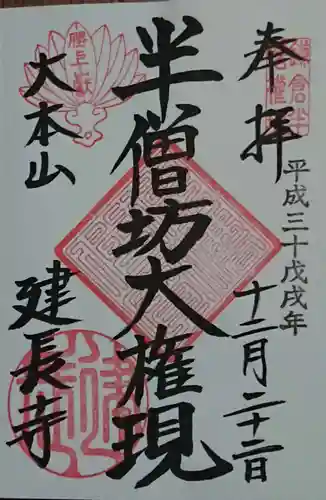 奉拝
平成三十戊戌年
十二月二十二日
半僧坊大権現
勝上嶽
大本山
建長寺